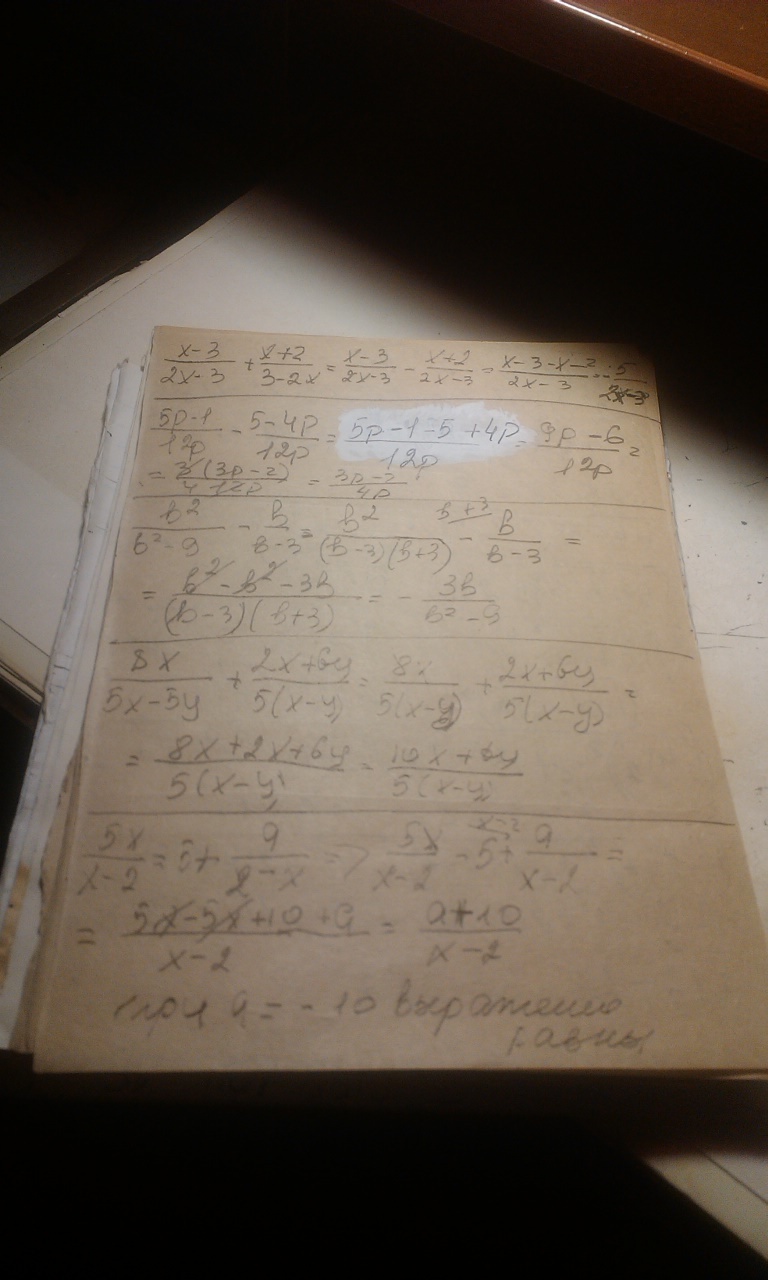 x-3/2x-3 + x+2/3-2x = x-3/2x-3 - x+2/2x-3 = x-3-x-2/2x-3 = -5/2x-3
5p-1/12p - 5-4p/12p = 5p-1-5+4p/12p = 9p-6/12p =
= 3(3p-2)/4 12p = 3p-2/4p
b²/b²-9 - b/b-3 = b²/(b-3)(b+3) - b+3 b/b-3 =
= b²-b²-3b/(b-3)(b+3) = - 3b/b²-9
8x/5x-5y + 2x+6y/5(x-y) = 8x/5(x-y) + 2x+6y/5(x-y) =
= 8x+2x+6y/5(x-y) = 10x+6y/5(x-y)
5x/x-2 = 5+ a/2-x => 5x/x-2 - 5+ x-2 a/x-2 =
= 5x-5x+10+a/x-2 = a+10/x-2
при a = -10 выражение
равны